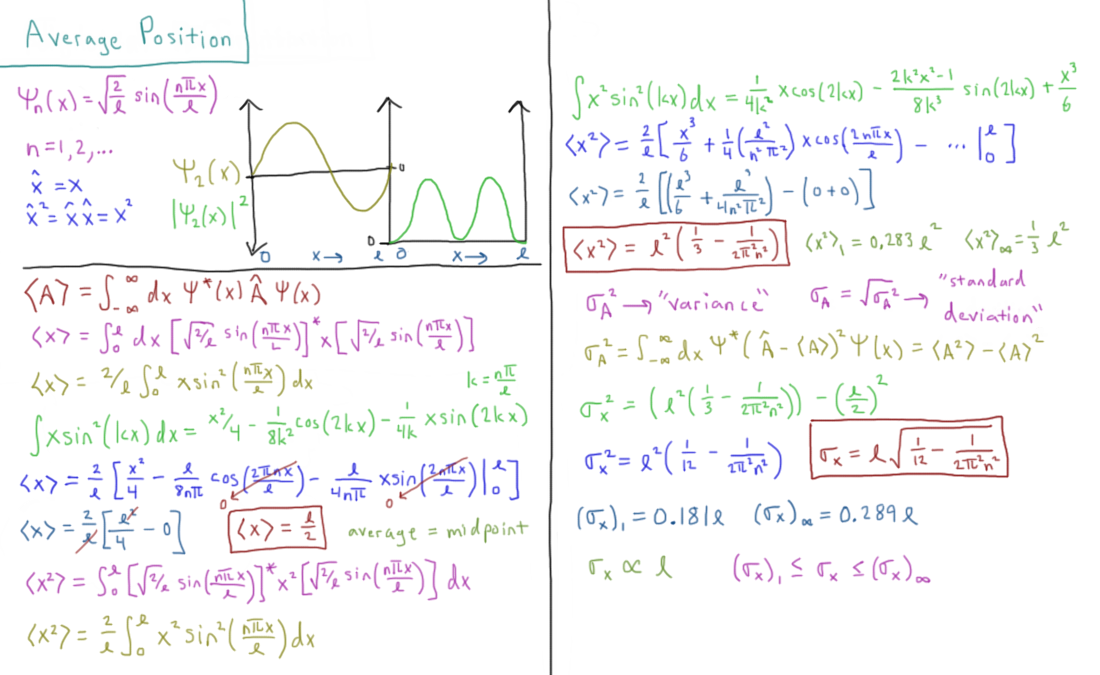 Average Position
Ψₙ(x) = √(2/ℓ) sin(nπx/ℓ)
n = 1, 2, ...
x̂ = x
x̂² = x̂ x̂ = x²
Ψ₂(x)
|Ψ₂(x)|²
0
0
0 x → ℓ 0 x → ℓ
⟨A⟩ = ∫_{-∞}^{∞} dx Ψ*(x) Â Ψ(x)
⟨x⟩ = ∫₀^ℓ dx [√(2/ℓ) sin(nπx/L)]* x [√(2/ℓ) sin(nπx/ℓ)]
⟨x⟩ = 2/ℓ ∫₀^ℓ x sin²(nπx/ℓ) dx k = nπ/ℓ
∫ x sin²(kx) dx = x²/4 - 1/8k² cos(2kx) - 1/4k x sin(2kx)
⟨x⟩ = 2/ℓ [x²/4 - ℓ/8nπ cos(2πnx/ℓ) - ℓ/4nπ x sin(2nπx/ℓ) |₀^ℓ]
0 0
⟨x⟩ = 2/ℓ [ℓ²/4 - 0] ⟨x⟩ = ℓ/2 average = midpoint
⟨x²⟩ = ∫₀^ℓ [√(2/ℓ) sin(nπx/ℓ)]* x² [√(2/ℓ) sin(nπx/ℓ)] dx
⟨x²⟩ = 2/ℓ ∫₀^ℓ x² sin²(nπx/ℓ) dx
∫ x² sin²(kx) dx = 1/4k² x cos(2kx) - (2k²x²-1)/8k³ sin(2kx) + x³/6
⟨x²⟩ = 2/ℓ [x³/6 + 1/4 (ℓ²/n²π²) x cos(2nπx/ℓ) - ... |₀^ℓ]
⟨x²⟩ = 2/ℓ [(ℓ³/6 + ℓ³/4n²π²) - (0+0)]
⟨x²⟩ = ℓ² (1/3 - 1/2π²n²) ⟨x²⟩₁ = 0,283 ℓ² ⟨x²⟩_∞ = 1/3 ℓ²
σ_A² → "variance" σ_A = √(σ_A²) → "standard deviation"
σ_A² = ∫_{-∞}^{∞} dx Ψ* (Â - ⟨A⟩)² Ψ(x) = ⟨A²⟩ - ⟨A⟩²
σₓ² = (ℓ² (1/3 - 1/2π²n²)) - (ℓ/2)²
σₓ² = ℓ² (1/12 - 1/2π²n²) σₓ = ℓ √(1/12 - 1/2π²n²)
(σₓ)₁ = 0.181ℓ (σₓ)_∞ = 0.289 ℓ
σₓ ∝ ℓ (σₓ)₁ ≤ σₓ ≤ (σₓ)_∞